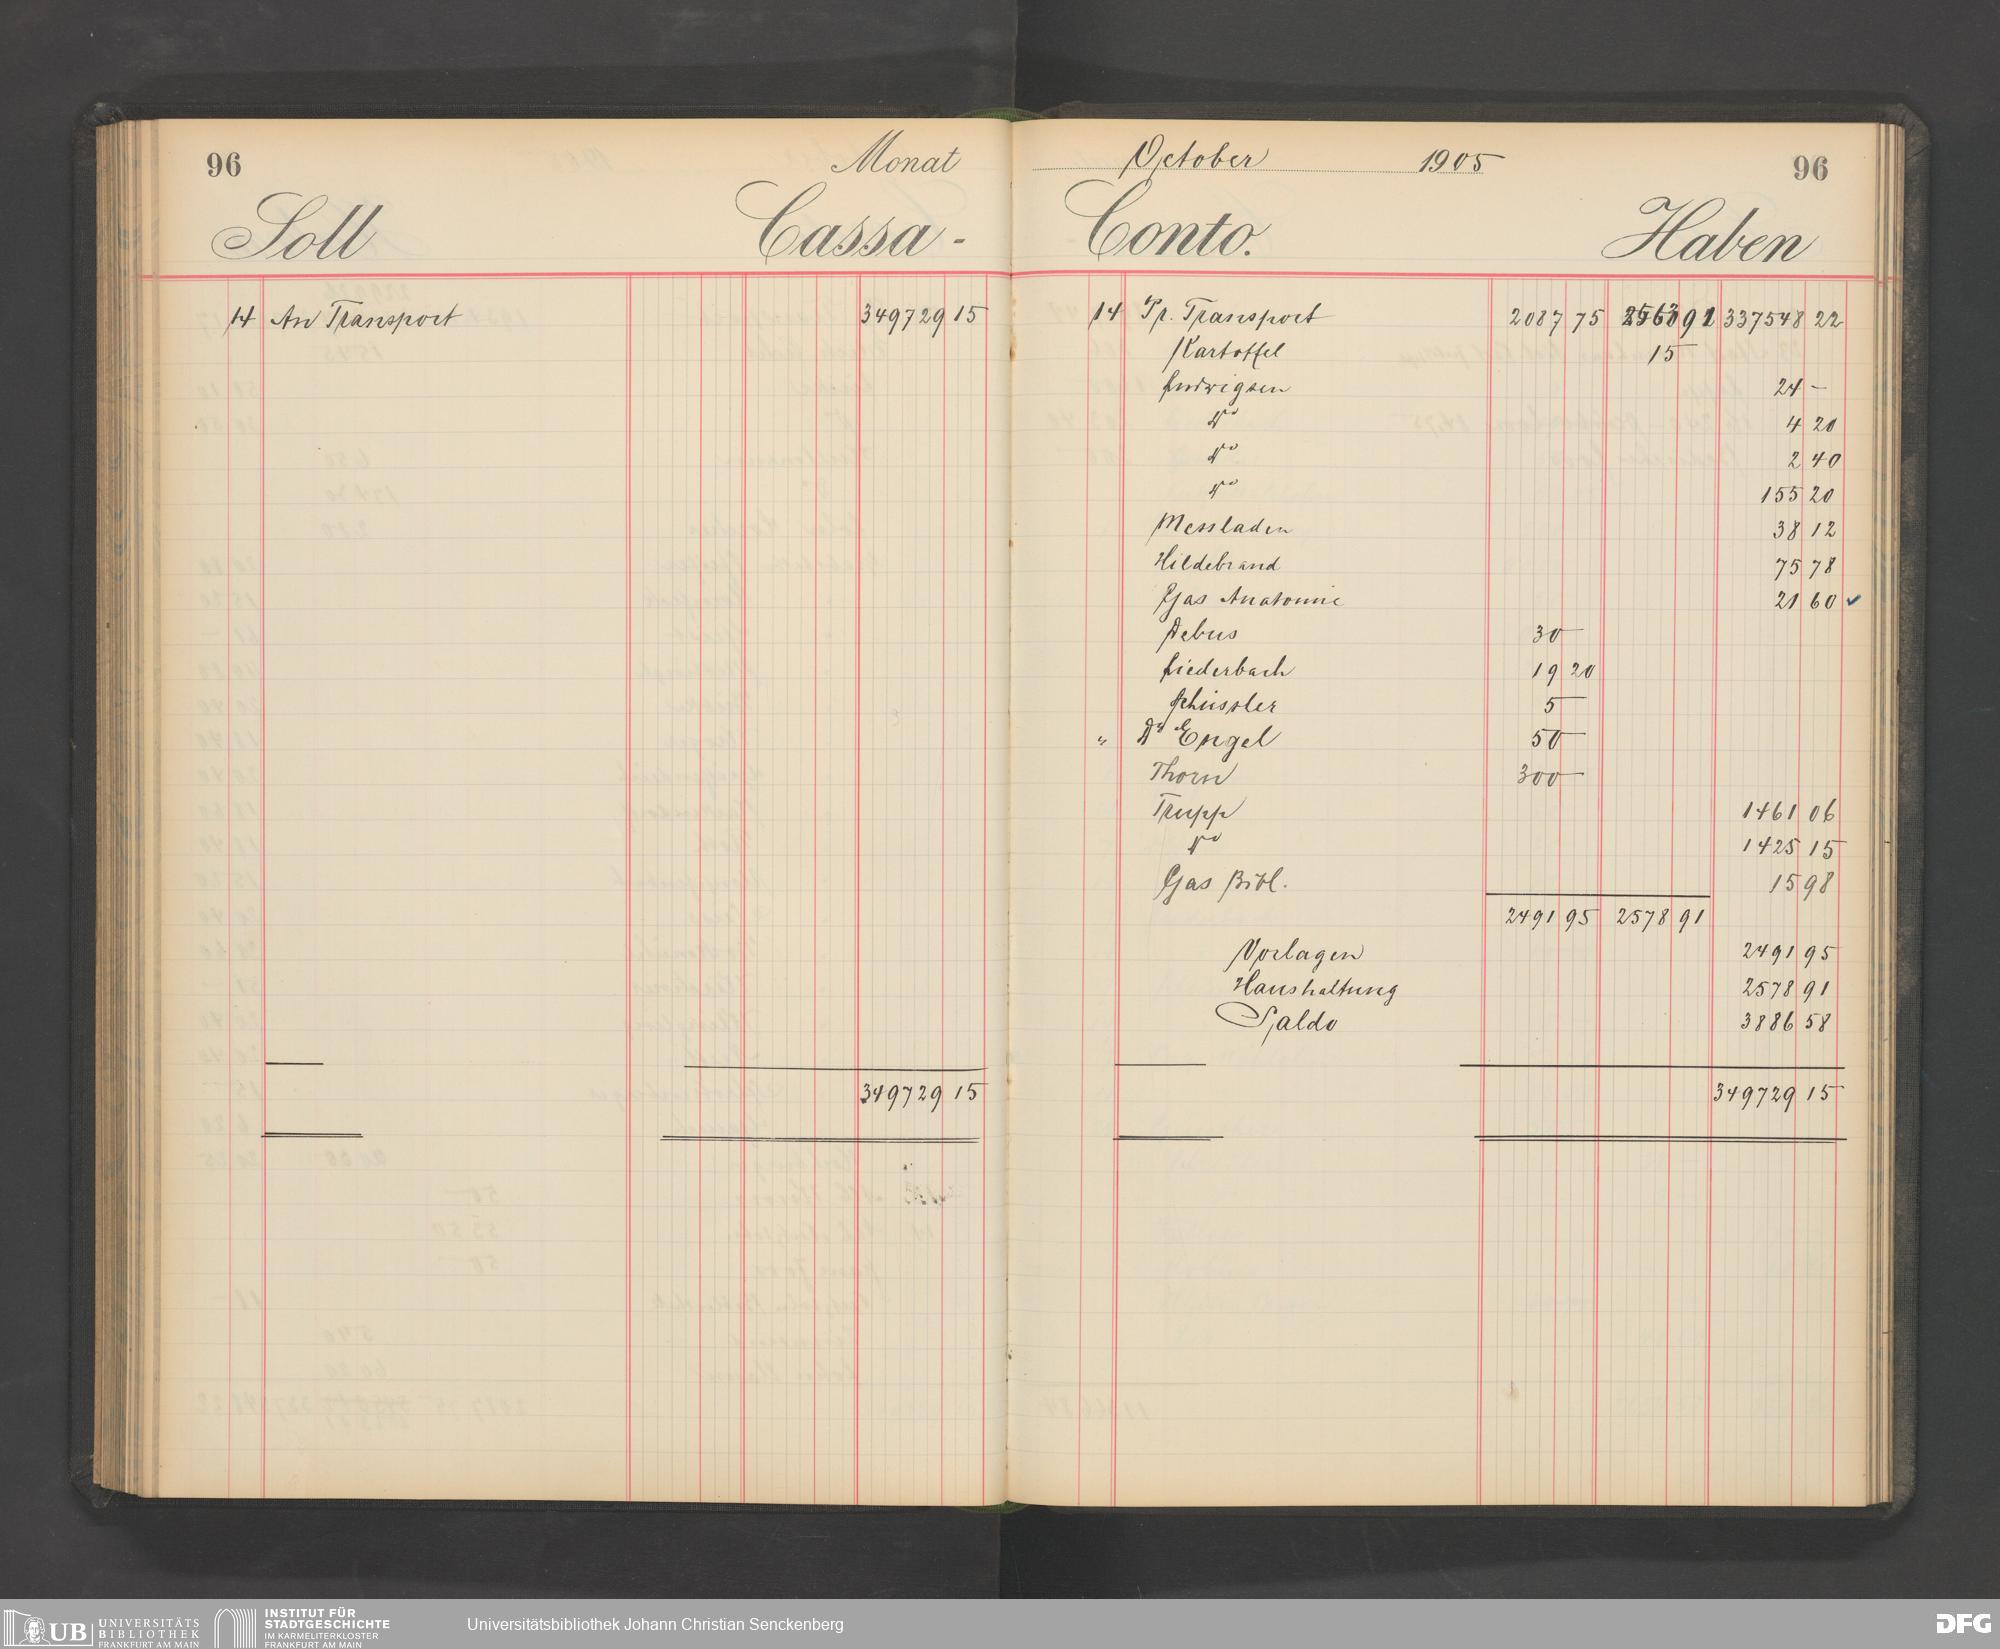 96 Monat
Soll Cassa -
14 An Transport 349729 15
349729 15
October 1905 96
Conto. Haben
14 Pr. Transport 2087 75 2563 91 337548 22
Kartoffel 15
Ludwigsen 24 -
do 4 20
do 2 40
do 155 20
Messladen 38 12
Hildebrand 75 78
Gas Anatomie 21 60 ✓
Debus 30 —
Liederbach 19 20
Schüssler 5 —
" Dr Engel 50 —
Thorn 300 —
Trupp 1461 06
do 1425 15
Gas Bibl. 15 98
2491 95 2578 91
Vorlagen 2491 95
Haushaltung 2578 91
Saldo 3886 58
349729 15
UB UNIVERSITÄTS
BIBLIOTHEK
FRANKFURT AM MAIN
INSTITUT FÜR
STADTGESCHICHTE
IM KARMELITERKLOSTER
FRANKFURT AM MAIN
Universitätsbibliothek Johann Christian Senckenberg
DFG